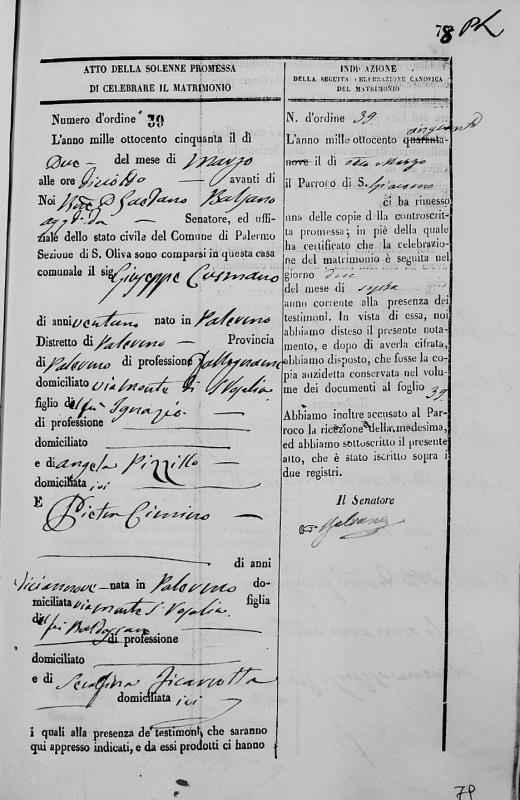 78
ATTO DELLA SOLENNE PROMESSA
DI CELEBRARE IL MATRIMONIO
Numero d'ordine 39
L'anno mille ottocento cinquanta il di
Due del mese di Marzo
alle ore diciotto avanti di
Noi D. Gaetano Balsano
Senatore, ed uffi-
ziale dello stato civile del Comune di Palermo
Sezione di S. Oliva sono comparsi in questa casa
comunale il sig Giuseppe Cosmano
di anni ventuno nato in Palermo
Distretto di Palermo Provincia
di Palermo di professione Falegname
domiciliato via Monte di S. Rosalia
figlio del fu Ignazio
di professione
domiciliato
e di Angela Pizzillo
domiciliata ivi
E
Pietra Cimino
di anni
diciannove nata in Palermo do-
miciliata via Monte S. Rosalia figlia
del fu Baldassare
di professione
domiciliato
e di Serafina Ficarotta
domiciliata ivi
i quali alla presenza de' testimoni, che saranno
qui appresso indicati, e da essi prodotti ci hanno
INDICAZIONE
DELLA SEGUITA CELEBRAZIONE CANONICA
DEL MATRIMONIO
N. d'ordine 39
cinquanta
L'anno mille ottocento quaranta-
nove il di otto Marzo
il Parroco di S. Giacomo
ci ha rimesso
una delle copie della controscrit-
ta promessa; in piè della quale
ha certificato che la celebrazio-
ne del matrimonio è seguita nel
giorno due
del mese di sudo
anno corrente alla presenza dei
testimoni. In vista di essa, noi
abbiamo disteso il presente nota-
mento, e dopo di averla cifrata,
abbiamo disposto, che fosse la
copia anzidetta conservata nel volu-
me dei documenti al foglio 39
Abbiamo inoltre accusato al Par-
roco la ricezione della medesima,
ed abbiamo sottoscritto il presente
atto, che è stato iscritto sopra i
due registri.
Il Senatore
Balsano
79